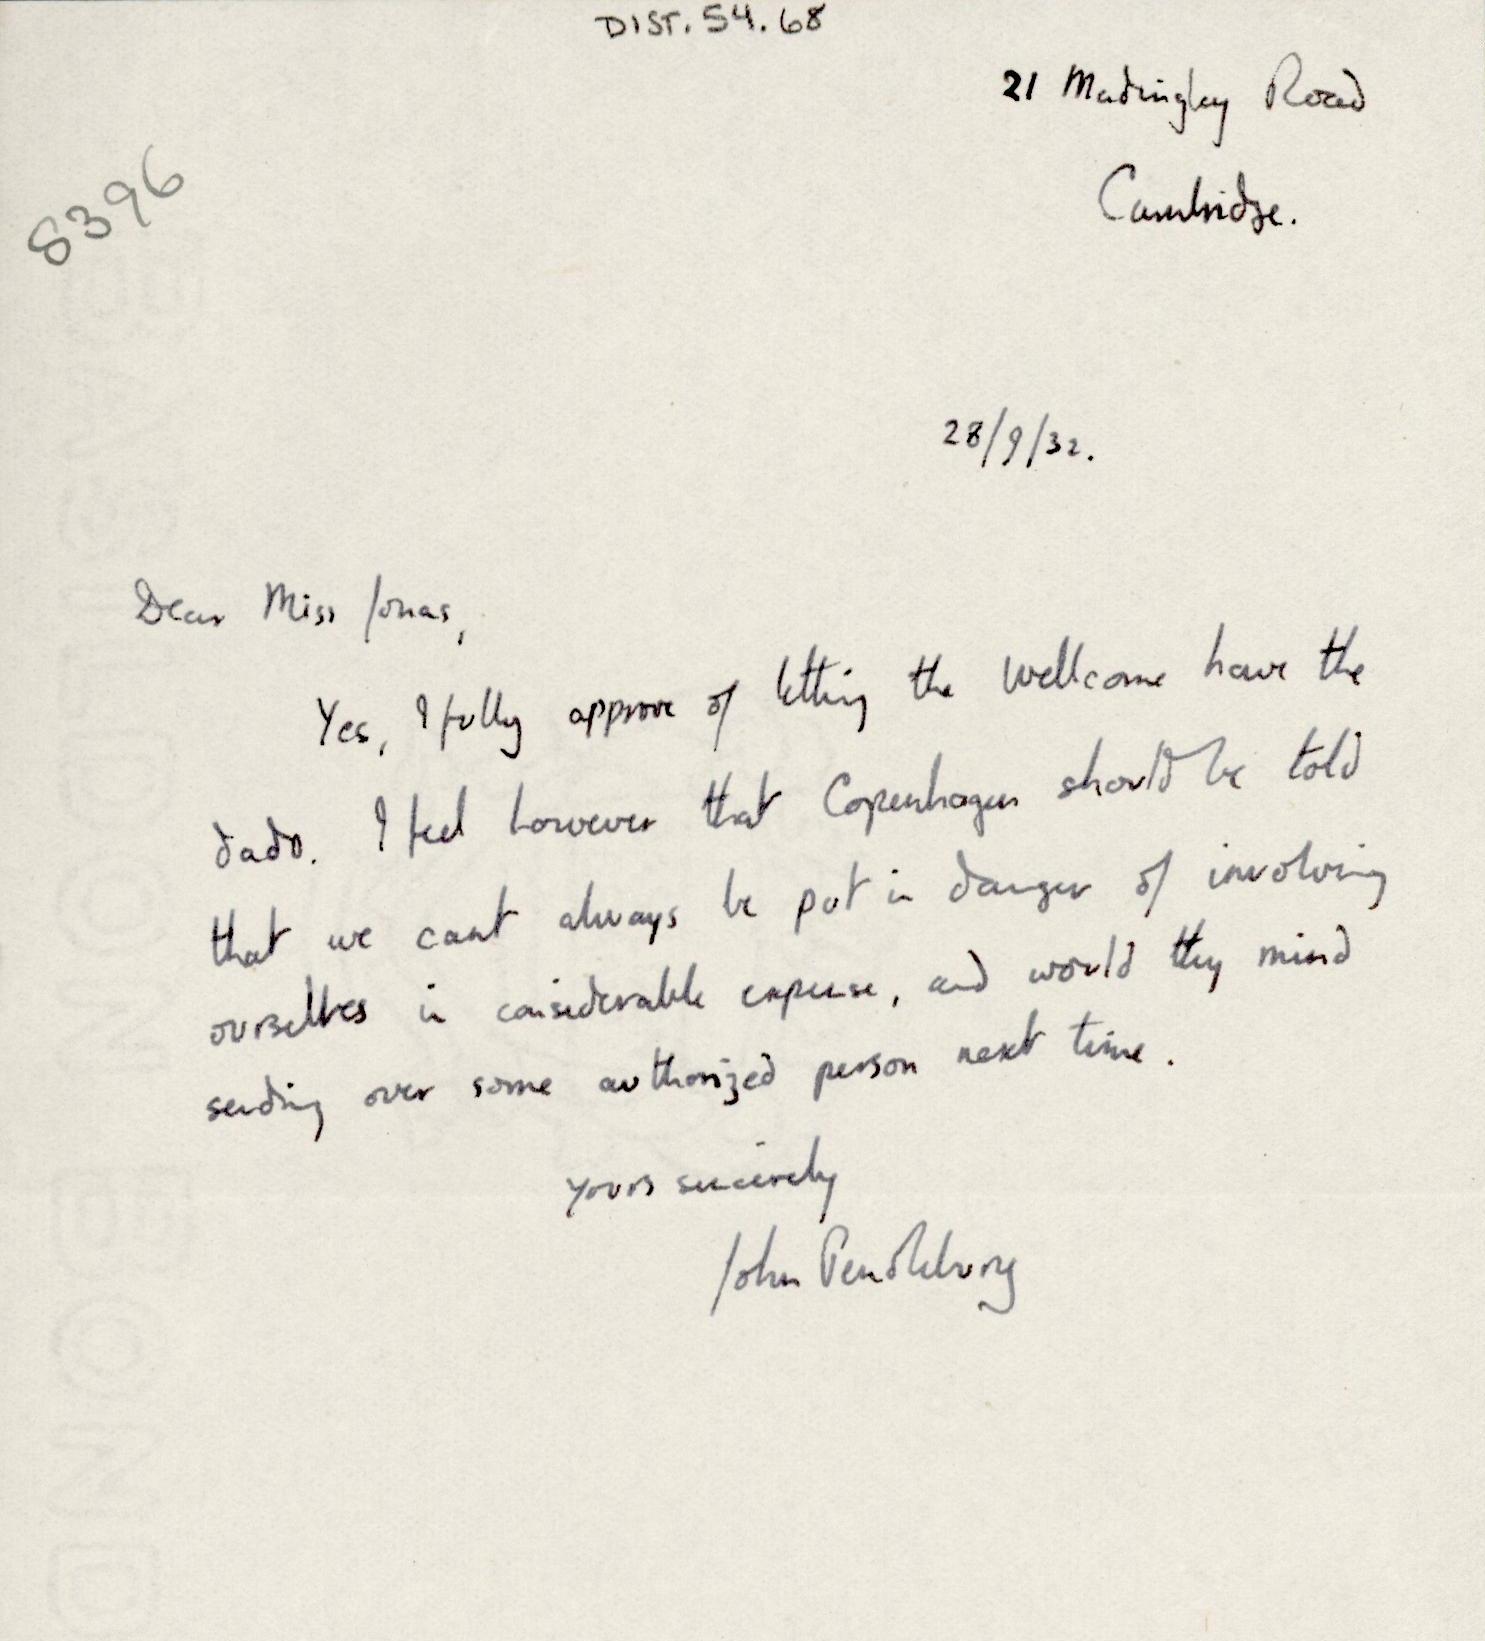 DIST. 54. 68
21 Madingley Road
Cambridge.
8396
28/9/32.
Dear Miss Jonas,
Yes, I fully approve of letting the Wellcome have the
dado. I feel however that Copenhagen should be told
that we cant always be put in danger of involving
ourselves in considerable expense, and would they mind
sending over some authorized person next time.
Yours sincerely
John Pendlebury